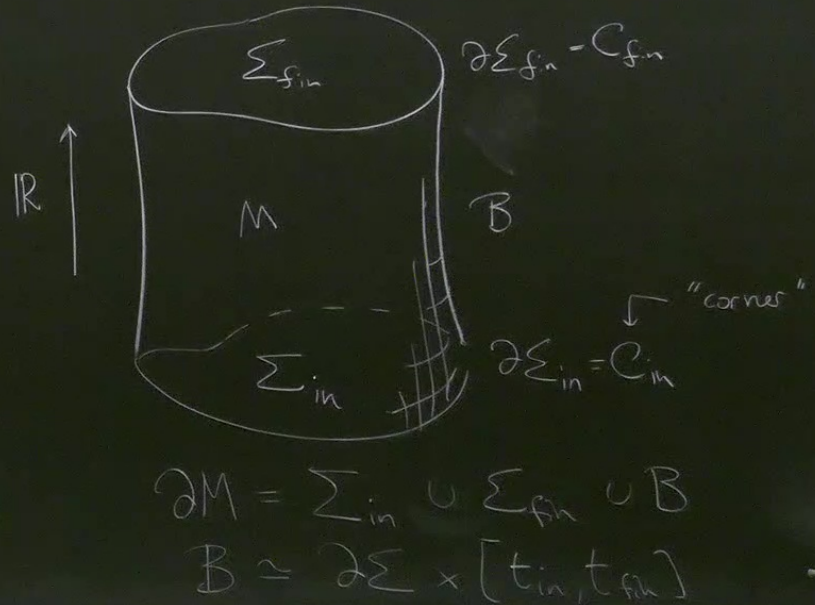 Σ_fin ∂Σ_fin = C_fin
ℝ
M
B
"corner"
Σ_in ∂Σ_in = C_in
∂M = Σ_in ∪ Σ_fin ∪ B
B ≃ ∂Σ × [t_in, t_fin]